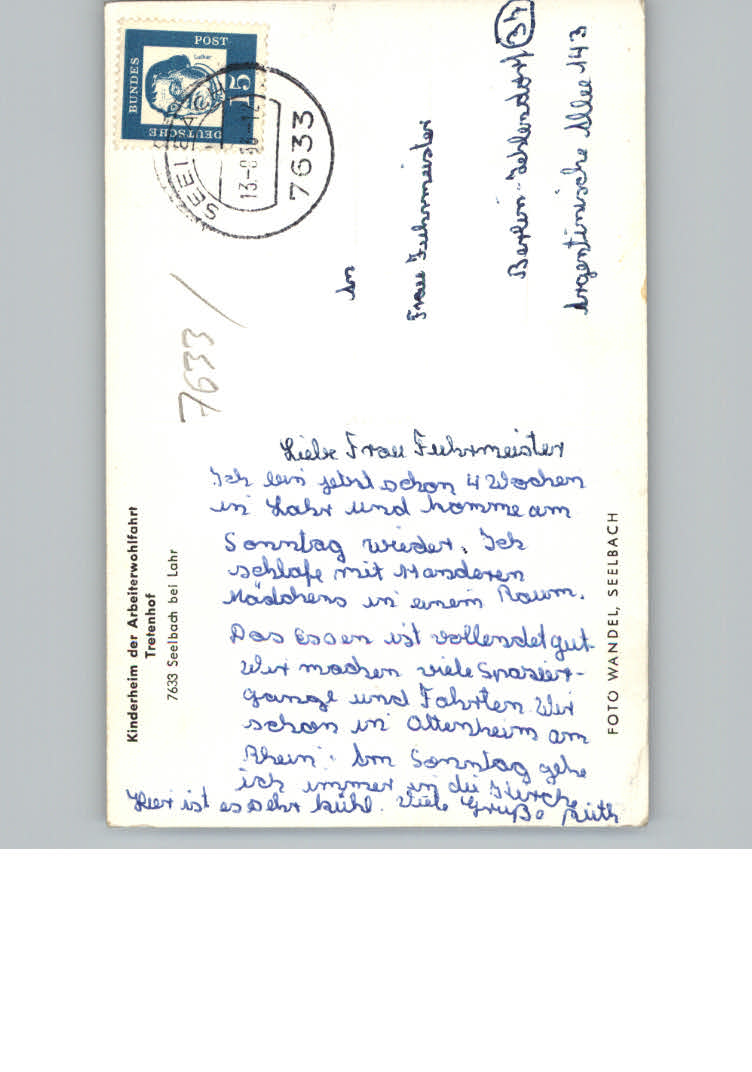 Kinderheim der Arbeiterwohlfahrt
Tretenhof
7633 Seelbach bei Lahr
7633
Liebe Frau Fuhrmeister
Ich bin jetzt schon 4 Wochen
in Lahr und komme am
Sonntag wieder. Ich
schlafe mit anderen
Mädchens in einem Raum.
Das Essen ist vollendet gut.
Wir machen viele Spazier-
gänge und Fahrten. Wir
schon in Ottenheim am
Rhein. Am Sonntag gehe
ich immer in die Kirche.
Hier ist es sehr kühl. Viele Grüße Ruth
FOTO WANDEL, SEELBACH
DEUTSCHE
BUNDES
POST
15
Luther
SEELBACH
7633
An
Frau Fuhrmeister
Berlin-Zehlendorf 37
Argentinische Allee 143